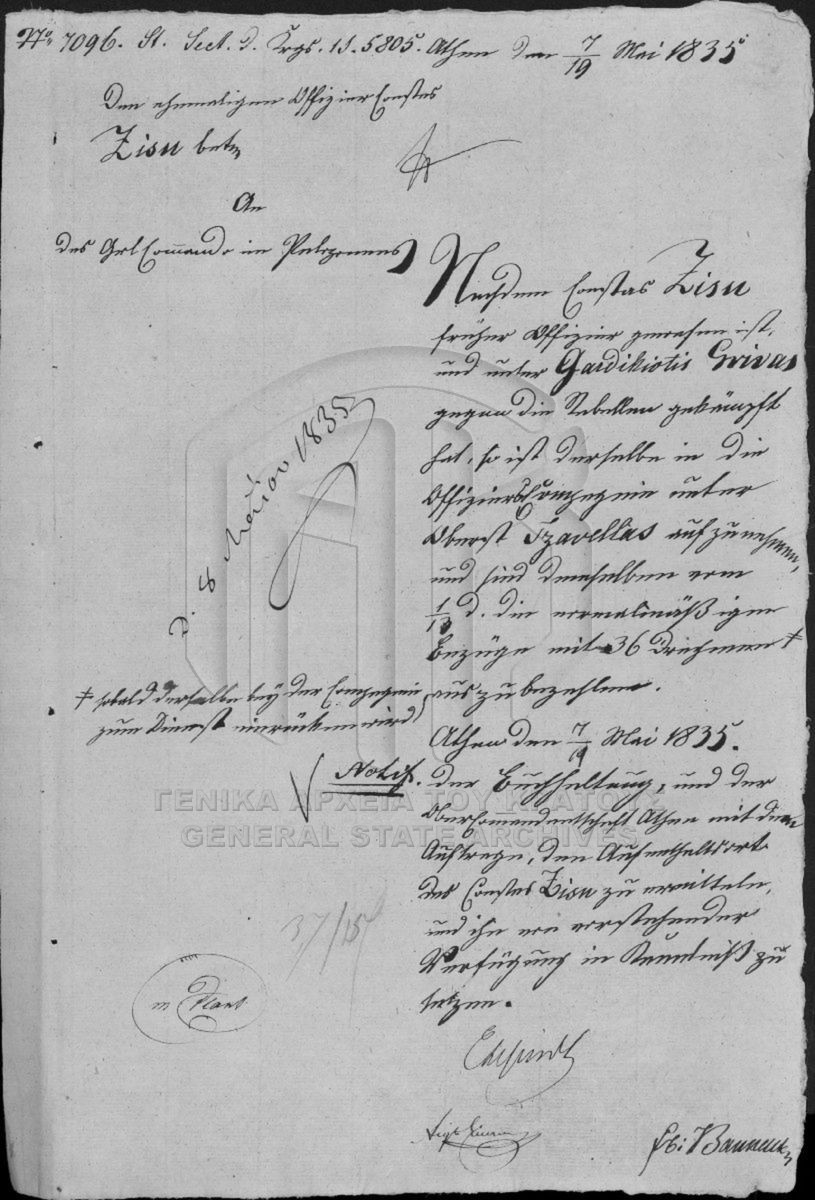 No. 7096. St. Sect. d. Krgs. 15. 5805. Athen den 7/19 Mai 1835
Den ehemaligen Offizier Constas
Zisu betr.
An
das Grl Commando im Peloponnes
Nachdem Constas Zisu
früher Offizier gewesen ist,
und unter Gardikiotis Grivas
gegen die Rebellen gekämpft
hat, so ist derselbe in die
Offiziers Compagnie unter
Oberst Tzavellas aufzunehmen,
und sind demselben vom
1/13 d. die normalmäßigen
Bezüge mit 36 Drachmen ‡
auszubezahlen.
‡ sobald derselbe bey der Compagnie
zum Dienst einrücken wird
δ. 8 Μαΐου 1835
Athen den 7/19 Mai 1835.
Notif. der Buchhaltung, und der
Ober Comandantschaft Athen mit dem
Auftrage, den Aufenthaltsort
des Constas Zisu zu ermitteln,
und ihn von vorstehender
Verfügung in Kenntniß zu
setzen.
37/15
ΓΕΝΙΚΑ ΑΡΧΕΙΑ ΤΟΥ ΚΡΑΤΟΥΣ
GENERAL STATE ARCHIVES